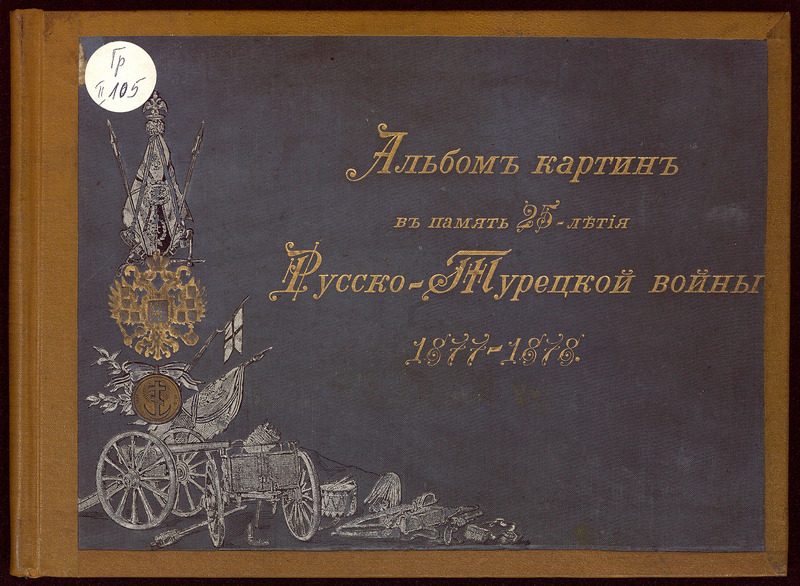 Гр
II 105
Альбомъ картинъ
въ память 25-лѣтія
Русско-Турецкой войны
1877-1878.